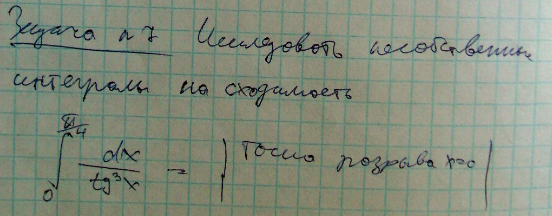 Задача №7 Исследовать несобственные
интегралы на сходимость
∫₀^{π/4} dx/tg³x = | Точка разрыва x=0 |